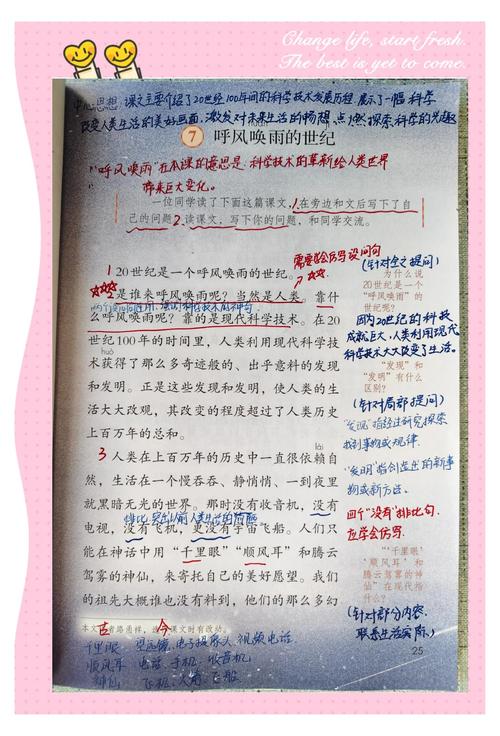 Change life, start fresh.
The best is yet to come.
中心思想：课文主要介绍了20世纪100年间的科学技术发展历程，展示了一幅科学
改变人类生活的美好画面，激发对未来生活的畅想，点燃探索科学的兴趣
7 呼风唤雨的世纪
"呼风唤雨"在本课的意思是：科学技术的革新给人类世界
带来巨大变化。
一位同学读了下面这篇课文，1.在旁边和文后写下了自
己的问题。2.读课文，写下你的问题，和同学交流。
需要学会仿写设问句
1 20世纪是一个呼风唤雨的世纪。
是谁来呼风唤雨呢？当然是人类。靠什
么呼风唤雨呢？靠的是现代科学技术。在20
世纪100年的时间里，人类利用现代科学技
huò
术获得了那么多奇迹般的、出乎意料的发现
和发明。正是这些发现和发明，使人类的生
活大大改观，其改变的程度超过了人类历史
上百万年的总和。
lài
3 人类在上百万年的历史中一直很依赖自
然，生活在一个慢吞吞、静悄悄、一到夜里
就黑暗无光的世界。那时没有收音机，没有
电视，没有飞机，更没有宇宙飞船。人们只
能在神话中用"千里眼""顺风耳"和腾云
驾雾的神仙，来寄托自己的美好愿望。我们
的祖先大概谁也没有料到，他们的那么多幻
（针对全文提问）
为什么说
20世纪是一个
"呼风唤雨"的
世纪呢？
因为20世纪的科技
成就巨大，人类利用现代
科学技术大大改变了生活。
"发现"和
"发明"有什么
区别？
（针对局部提问）
"发现"指经过研究探索
找到事物或规律.
"发明"指创造出的新事
物或新方法。
四个"没有"排比句.
应学会仿写.
"'千里眼'
'顺风耳'和
腾云驾雾的神
仙"在现代指
什么？
（针对部分内容.
联系生活实际）
千里眼 望远镜、电子摄像头、视频电话
顺风耳 电话、手机、收音机
神仙 飞机、火箭、飞船
25